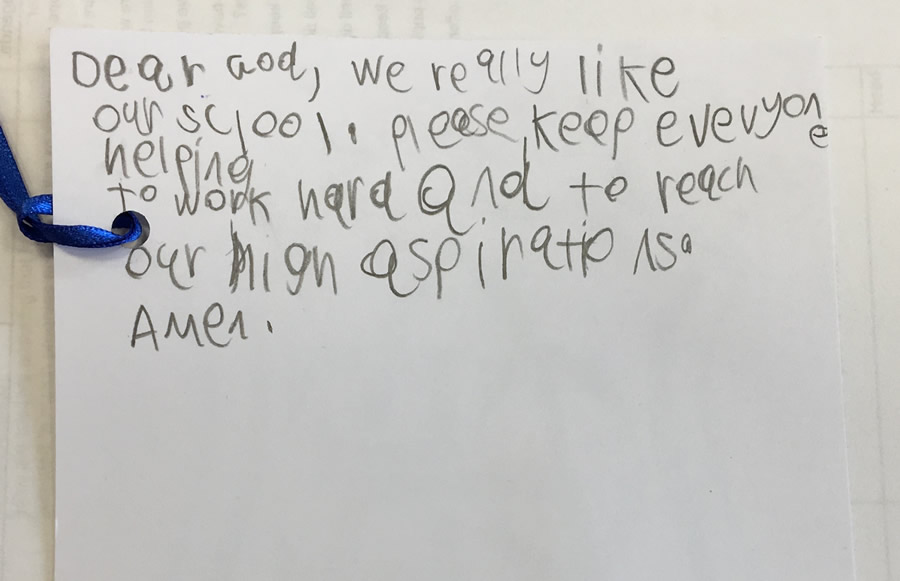 Dear God, we really like
our sclool. please keep everyone
helping
to work hard And to reach
our high aspirations.
Amen.